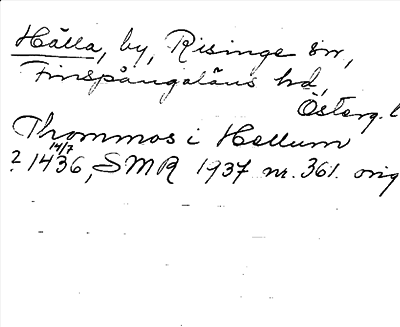 Hälla, by, Risinge sn,
Finspångaläns hd,
Österg. l
Thommos i Hellum
? 14/7 1436, SMR 1937 nr. 361. orig